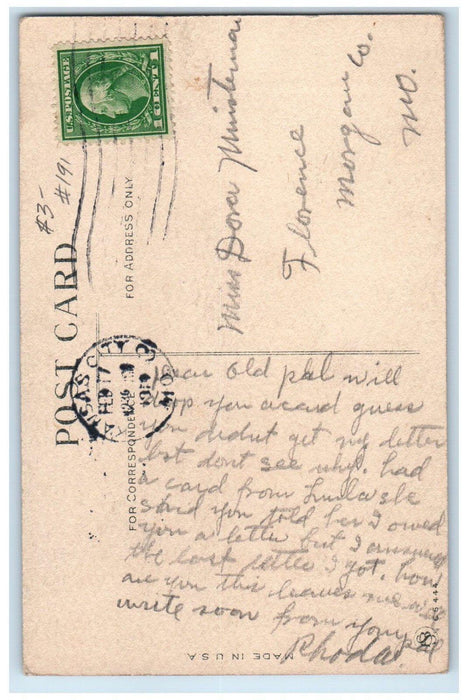 U.S. POSTAGE
1 CENT 1
$3-
#191
POST CARD
FOR ADDRESS ONLY
FOR CORRESPONDENCE
KANSAS CITY
FEB 17
1914
MO.
Miss Dora Ministerman
Florence
Morgan Co.
Mo.
Dear Old pal will
drop you a card guess
you didnt get my letter
but dont see why. had
a card from she
said you told her I owed
you a letter but I answered
the last letter I got. how
are you this leaves me well
write soon from your pal
Rhoda
MADE IN U.S.A.